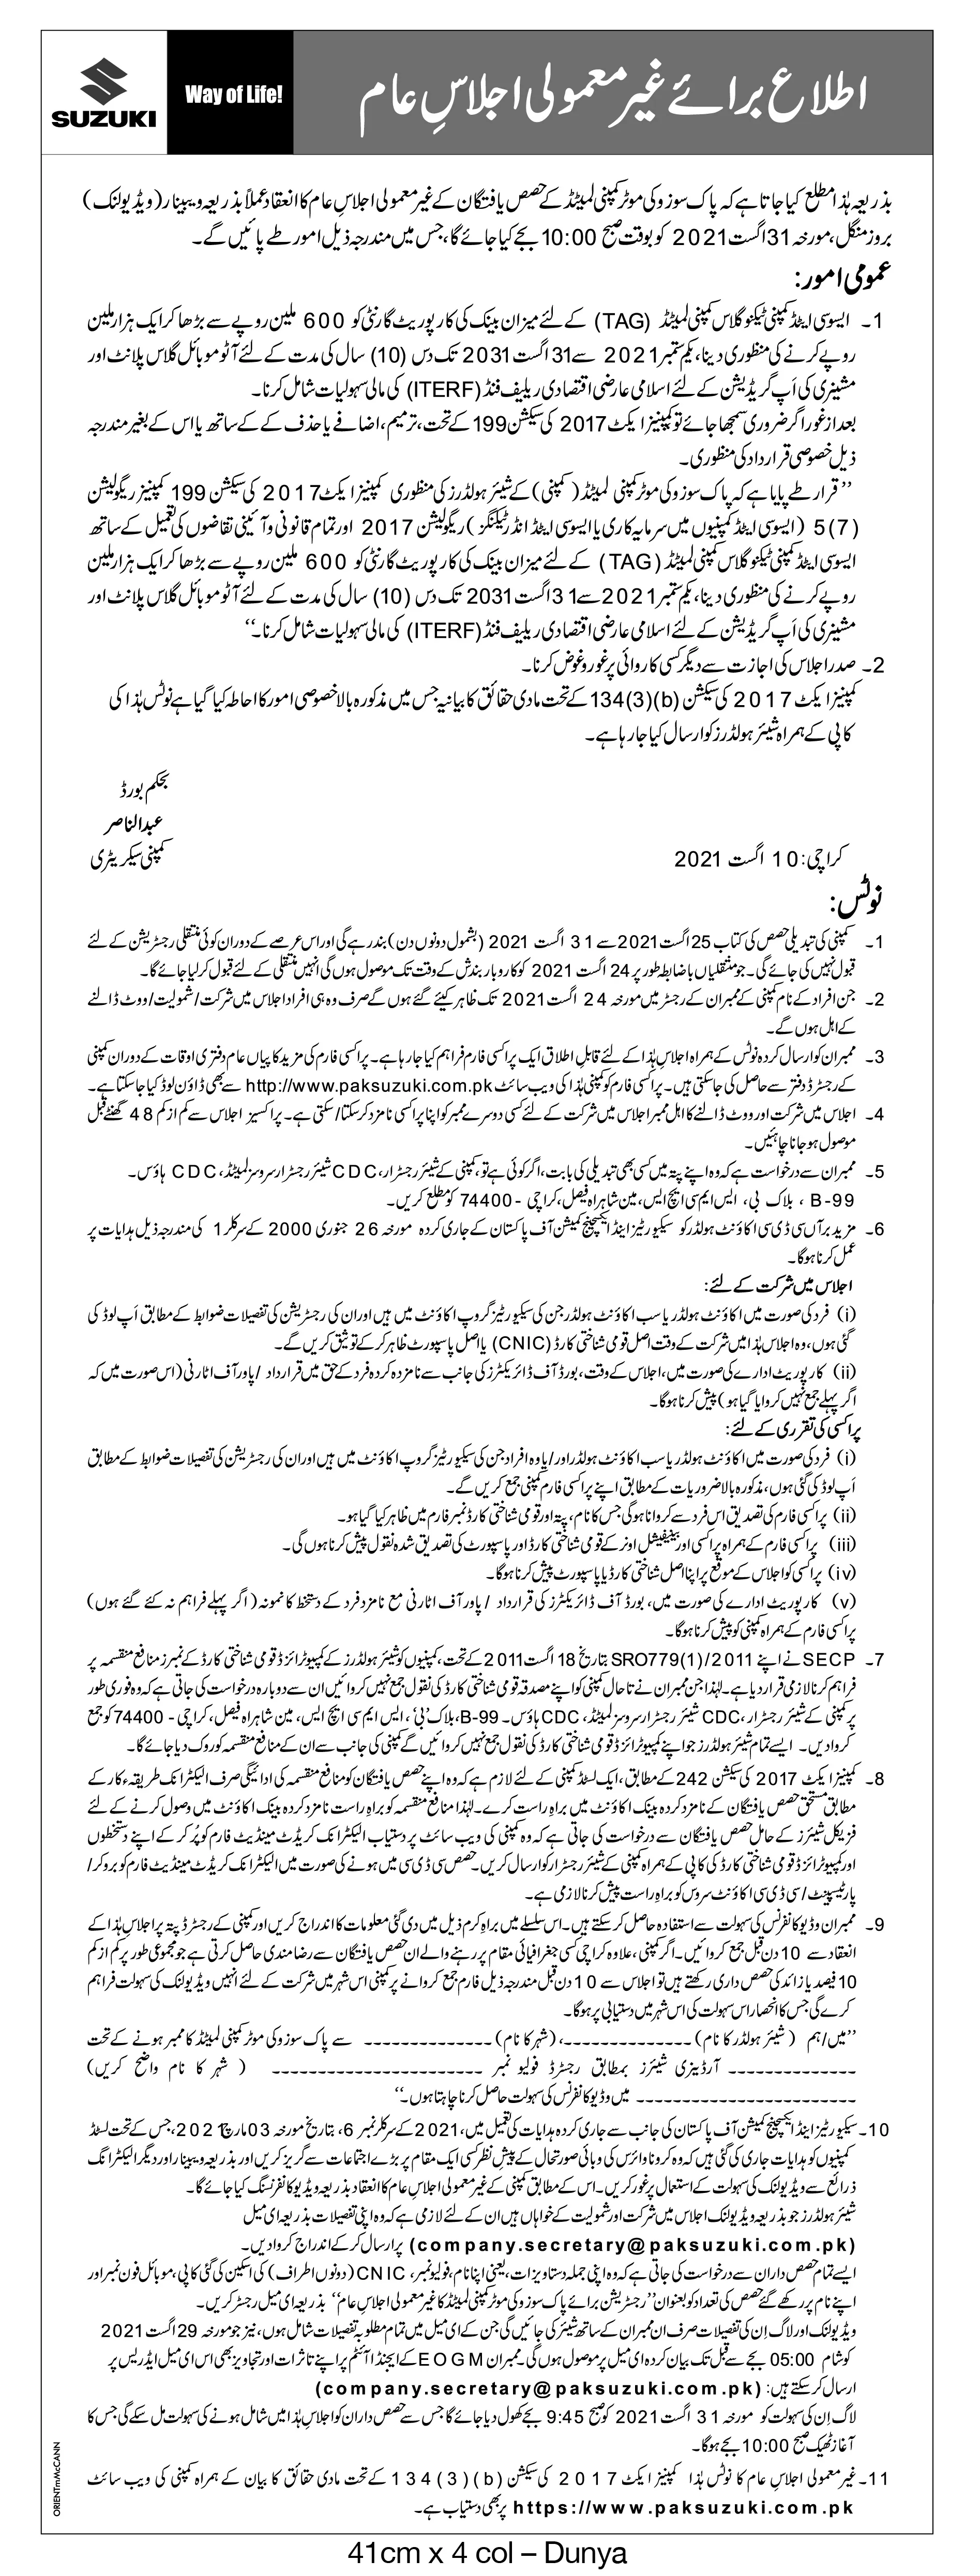 SUZUKI
Way of Life!
اطلاع برائے غیر معمولی اجلاسِ عام
بذریعہ ہٰذا مطلع کیا جاتا ہے کہ پاک سوزوکی موٹر کمپنی لمیٹڈ کے حصص یافتگان کے غیر معمولی اجلاسِ عام کا انعقاد عملاً بذریعہ ویبینار (ویڈیو لنک)
بروز منگل، مورخہ 31 اگست 2021 کو بوقت صبح 10:00 بجے کیا جائے گا، جس میں مندرجہ ذیل امور طے پائیں گے۔
عمومی امور:
1۔ ایسوسی ایٹڈ کمپنی ٹیکنو گلاس کمپنی لمیٹڈ (TAG) کے لئے میزان بینک کی کارپوریٹ گارنٹی کو 600 ملین روپے سے بڑھا کر ایک ہزار ملین
روپے کرنے کی منظوری دینا، یکم ستمبر 2021 سے 31 اگست 2031 تک دس (10) سال کی مدت کے لئے آٹو موبائل گلاس پلانٹ اور
مشینری کی اَپ گریڈیشن کے لئے اسلامی عارضی اقتصادی ریلیف فنڈ (ITERF) کی مالی سہولیات شامل کرنا۔
بعد از غور اگر ضروری سمجھا جائے تو کمپنیز ایکٹ 2017 کی سیکشن 199 کے تحت، ترمیم، اضافے یا حذف کے کے ساتھ یا اس کے بغیر مندرجہ
ذیل خصوصی قرارداد کی منظوری۔
’’قرار طے پایا ہے کہ پاک سوزوکی موٹر کمپنی لمیٹڈ (کمپنی) کے شیئر ہولڈرز کی منظوری کمپنیز ایکٹ 2017 کی سیکشن 199 کمپنیز ریگولیشن
5(7) (ایسوسی ایٹڈ کمپنیوں میں سرمایہ کاری یا ایسوسی ایٹڈ انڈرٹیکنگز) ریگولیشن 2017 اور تمام قانونی و آئینی تقاضوں کی تعمیل کے ساتھ
ایسوسی ایٹڈ کمپنی ٹیکنو گلاس کمپنی لمیٹڈ (TAG) کے لئے میزان بینک کی کارپوریٹ گارنٹی کو 600 ملین روپے سے بڑھا کر ایک ہزار ملین
روپے کرنے کی منظوری دینا، یکم ستمبر 2021 سے 31 اگست 2031 تک دس (10) سال کی مدت کے لئے آٹو موبائل گلاس پلانٹ اور
مشینری کی اَپ گریڈیشن کے لئے اسلامی عارضی اقتصادی ریلیف فنڈ (ITERF) کی مالی سہولیات شامل کرنا۔‘‘
2۔ صدر اجلاس کی اجازت سے دیگر کسی کاروائی پر غور و غوض کرنا۔
کمپنیز ایکٹ 2017 کی سیکشن 134(3)(b) کے تحت مادی حقائق کا بیانیہ جس میں مذکورہ بالا خصوصی امور کا احاطہ کیا گیا ہے نوٹس ہٰذا کی
کاپی کے ہمراہ شیئر ہولڈرز کو ارسال کیا جا رہا ہے۔
بحکم بورڈ
عبدالناصر
کمپنی سیکریٹری
کراچی: 10 اگست 2021
نوٹس:
1۔ کمپنی کی تبدیلی حصص کی کتاب 25 اگست 2021 سے 31 اگست 2021 (بشمول دونوں دن) بند رہے گی اور اس عرصے کے دوران کوئی منتقلی رجسٹریشن کے لئے
قبول نہیں کی جائے گی۔ جو منتقلیاں باضابطہ طور پر 24 اگست 2021 کو کاروبار بندش کے وقت تک موصول ہوں گی انہیں منتقلی کے لئے قبول کر لیا جائے گا۔
2۔ جن افراد کے نام کمپنی کے ممبران کے رجسٹر میں مورخہ 24 اگست 2021 تک ظاہر کیئے گئے ہوں گے صرف وہ ہی افراد اجلاس میں شرکت/شمولیت/ووٹ ڈالنے
کے اہل ہوں گے۔
3۔ ممبران کو ارسال کردہ نوٹس کے ہمراہ اجلاسِ ہٰذا کے لئے قابلِ اطلاق ایک پراکسی فارم فراہم کیا جا رہا ہے۔ پراکسی فارم کی مزید کاپیاں عام دفتری اوقات کے دوران کمپنی
کے رجسٹرڈ دفتر سے حاصل کی جا سکتی ہیں۔ پراکسی فارم کو کمپنی ہٰذا کی ویب سائٹ http://www.paksuzuki.com.pk سے بھی ڈاؤن لوڈ کیا جا سکتا ہے۔
4۔ اجلاس میں شرکت اور ووٹ ڈالنے کا اہل ممبر اجلاس میں شرکت کے لئے کسی دوسرے ممبر کو اپنا پراکسی نامزد کر سکتا/سکتی ہے۔ پراکسیز اجلاس سے کم از کم 48 گھنٹے قبل
موصول ہو جانا چاہئیں۔
5۔ ممبران سے درخواست ہے کہ وہ اپنے پتہ میں کسی بھی تبدیلی کی بابت، اگر کوئی ہے تو، کمپنی کے شیئر رجسٹرار، CDC شیئر رجسٹرار سروسز لمیٹڈ، CDC ہاؤس۔
B-99 ، بلاک بی، ایس ایم سی ایچ ایس، مین شاہراہ فیصل، کراچی - 74400 کو مطلع کریں۔
6۔ مزید برآں سی ڈی سی اکاؤنٹ ہولڈر کو سیکیورٹیز اینڈ ایکسچینج کمیشن آف پاکستان کے جاری کردہ مورخہ 26 جنوری 2000 کے سرکلر 1 کی مندرجہ ذیل ہدایات پر
عمل کرنا ہوگا۔
اجلاس میں شرکت کے لئے:
(i) فرد کی صورت میں اکاؤنٹ ہولڈر یا سب اکاؤنٹ ہولڈر جن کی سیکیورٹیز گروپ اکاؤنٹ میں ہیں اور ان کی رجسٹریشن کی تفصیلات ضوابط کے مطابق اَپ لوڈ کی
گئی ہوں، وہ اجلاس ہٰذا میں شرکت کے وقت اصل قومی شناختی کارڈ (CNIC) یا اصل پاسپورٹ ظاہر کر کے توثیق کریں گے۔
(ii) کارپوریٹ ادارے کی صورت میں، اجلاس کے وقت، بورڈ آف ڈائریکٹرز کی جانب سے نامزدہ کردہ فرد کے حق میں قرارداد /پاور آف اٹارنی (اس صورت میں کہ
اگر پہلے جمع نہیں کروایا گیا ہو) پیش کرنا ہوگا۔
پراکسی کی تقرری کے لئے:
(i) فرد کی صورت میں اکاؤنٹ ہولڈر یا سب اکاؤنٹ ہولڈر اور/یا وہ افراد جن کی سیکیورٹیز گروپ اکاؤنٹ میں ہیں اور ان کی رجسٹریشن کی تفصیلات ضوابط کے مطابق
اَپ لوڈ کی گئی ہوں، مذکورہ بالا ضروریات کے مطابق اپنے پراکسی فارم کمپنی جمع کریں گے۔
(ii) پراکسی فارم کی تصدیق اس فرد سے کروانا ہوگی جس کا نام، پتہ اور قومی شناختی کارڈ نمبر فارم میں ظاہر کیا گیا ہو۔
(iii) پراکسی فارم کے ہمراہ پراکسی اور بینیفیشل اونر کے قومی شناختی کارڈ اور پاسپورٹ کی تصدیق شدہ نقول پیش کرنا ہوں گی۔
(iv) پراکسی کو اجلاس کے موقع پر اپنا اصل شناختی کارڈ یا پاسپورٹ پیش کرنا ہوگا۔
(v) کارپوریٹ ادارے کی صورت میں، بورڈ آف ڈائریکٹرز کی قرارداد / پاور آف اٹارنی مع نامزد فرد کے دستخط کا نمونہ (اگر پہلے فراہم نہ کئے گئے ہوں)
پراکسی فارم کے ہمراہ کمپنی کو پیش کرنا ہوگا۔
7۔ SECP نے اپنے SRO779(1)/2011 بتاریخ 18 اگست 2011 کے تحت، کمپنیوں کو شیئر ہولڈرز کے کمپیوٹرائزڈ قومی شناختی کارڈ کے نمبرز منافع منقسمہ پر
فراہم کرنا لازمی قرار دیا ہے۔ لہٰذا جن ممبران نے تا حال کمپنی کو اپنے مصدقہ قومی شناختی کارڈ کی نقول جمع نہیں کروائیں ان سے دوبارہ درخواست کی جاتی ہے کہ وہ فوری طور
پر کمپنی کے شیئر رجسٹرار، CDC شیئر رجسٹرار سروسز لمیٹڈ، CDC ہاؤس۔ B-99، بلاک ’بی‘، ایس ایم سی ایچ ایس، مین شاہراہ فیصل، کراچی - 74400 کو جمع
کروا دیں۔ ایسے تمام شیئر ہولڈرز جو اپنے کمپیوٹرائزڈ قومی شناختی کارڈ کی نقول جمع نہیں کروائیں گے کمپنی کی جانب سے ان کے منافع منقسمہ کو روک دیا جائے گا۔
8۔ کمپنیز ایکٹ 2017 کی سیکشن 242 کے مطابق، ایک لسٹڈ کمپنی کے لئے لازم ہے کہ وہ اپنے حصص یافتگان کو منافع منقسمہ کی ادائیگی صرف الیکٹرانک طریقہء کار کے
مطابق مستحق حصص یافتگان کے نامزد کردہ بینک اکاؤنٹ میں براہِ راست کرے۔ لہٰذا منافع منقسمہ کو براہِ راست نامزد کردہ بینک اکاؤنٹ میں وصول کرنے کے لئے
فزیکل شیئرز کے حامل حصص یافتگان سے درخواست کی جاتی ہے کہ وہ کمپنی کی ویب سائٹ پر دستیاب الیکٹرانک کریڈٹ مینڈیٹ فارم کو پُر کر کے اپنے دستخطوں
اور کمپیوٹرائزڈ قومی شناختی کارڈ کی کاپی کے ہمراہ کمپنی کے شیئر رجسٹرار کو ارسال کریں۔ حصص سی ڈی سی میں ہونے کی صورت میں الیکٹرانک کریڈٹ مینڈیٹ فارم کو بروکر/
پارٹیسپنٹ/سی ڈی سی اکاؤنٹ سروس کو براہِ راست پیش کرنا لازمی ہے۔
9۔ ممبران وڈیو کانفرنس کی سہولت سے استفادہ حاصل کر سکتے ہیں۔ اس سلسلے میں براہِ کرم ذیل میں دی گئی معلومات کا اندراج کریں اور کمپنی کے رجسٹرڈ پتہ پر اجلاسِ ہٰذا کے
انعقاد سے 10 دن قبل جمع کروائیں۔ اگر کمپنی، علاوہ کراچی کسی جغرافیائی مقام پر رہنے والے ان حصص یافتگان سے رضامندی حاصل کرتی ہے جو مجموعی طور پر کم از کم
10 فیصد یا زائد کی حصص داری رکھتے ہیں تو اجلاس سے 10 دن قبل مندرجہ ذیل فارم جمع کروانے پر کمپنی اس شہر میں شرکت کے لئے انہیں ویڈیو لنک کی سہولت فراہم
کرے گی جس کا انحصار اس سہولت کی اس شہر میں دستیابی پر ہوگا۔
’’میں/ہم (شیئر ہولڈر کا نام) --------------، (شہر کا نام) -------------- سے پاک سوزوکی موٹر کمپنی لمیٹڈ کا ممبر ہونے کے تحت
-------------- آرڈینری شیئرز بمطابق رجسٹرڈ فولیو نمبر ---------------------- (شہر کا نام واضح کریں)
------------------------ میں وڈیو کانفرنس کی سہولت حاصل کرنا چاہتا ہوں۔‘‘
10۔ سیکیورٹیز اینڈ ایکسچینج کمیشن آف پاکستان کی جانب سے جاری کردہ ہدایات کی تعمیل میں، 2021 کے سرکلر نمبر 6، بتاریخ مورخہ 03 مارچ 2021، جس کے تحت لسٹڈ
کمپنیوں کو ہدایات جاری کی گئی ہیں کہ وہ کرونا وائرس کی وبائی صورتحال کے پیشِ نظر کسی ایک مقام پر بڑے اجتماعات سے گریز کریں اور بذریعہ ویبینار اور دیگر الیکٹرانک
ذرائع سے ویڈیو لنک کی سہولت کے استعمال پر غور کریں۔ اس کے مطابق کمپنی کے غیر معمولی اجلاسِ عام کا انعقاد بذریعہ ویڈیو کانفرنسنگ کیا جائے گا۔
شیئر ہولڈرز جو بذریعہ ویڈیو لنک اجلاس میں شرکت اور شمولیت کے خواہاں ہیں ان کے لئے لازمی ہے کہ وہ اپنی تفصیلات بذریعہ ای میل
(company.secretary@paksuzuki.com.pk) پر ارسال کر کے اندراج کروا دیں۔
ایسے تمام حصص داران سے درخواست کی جاتی ہے کہ وہ اپنی جملہ دستاویزات، یعنی اپنا نام، فولیو نمبر، CNIC (دونوں اطراف) کی اسکین کی گئی کاپی، موبائل فون نمبر اور
اپنے نام پر رکھے گئے حصص کی تعداد کو بعنوان ’’رجسٹریشن برائے پاک سوزوکی موٹر کمپنی لمیٹڈ کا غیر معمولی اجلاسِ عام‘‘ بذریعہ ای میل رجسٹر کریں۔
ویڈیو لنک اور لاگ اِن کی تفصیلات صرف ان ممبران کے ساتھ شیئر کی جائیں گی جن کے ای میل میں تمام مطلوبہ تفصیلات شامل ہوں، نیز جو مورخہ 29 اگست 2021
کو شام 05:00 بجے سے قبل تک بیان کردہ ای میل پر موصول ہوں گی۔ ممبران EOGM کے ایجنڈا آئٹم پر اپنے تاثرات اور تجاویز بھی اس ای میل ایڈریس پر
ارسال کر سکتے ہیں: (company.secretary@paksuzuki.com.pk)
لاگ اِن کی سہولت کو مورخہ 31 اگست 2021 کو صبح 9:45 بجے کھول دیا جائے گا جس سے حصص داران کو اجلاسِ ہٰذا میں شامل ہونے کی سہولت مل سکے گی جس کا
آغاز ٹھیک صبح 10:00 بجے ہوگا۔
11۔ غیر معمولی اجلاسِ عام کا نوٹس ہٰذا کمپنیز ایکٹ 2017 کی سیکشن 134(3)(b) کے تحت مادی حقائق کا بیان کے ہمراہ کمپنی کی ویب سائٹ
https://www.paksuzuki.com.pk پر بھی دستیاب ہے۔
ORIENTmMcCANN
41cm x 4 col – Dunya